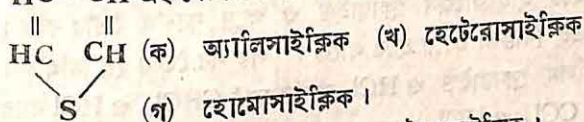 ||     ||
HC  CH (ক) অ্যালিসাইক্লিক (খ) হেটেরোসাইক্লিক
S (গ) হোমোসাইক্লিক।